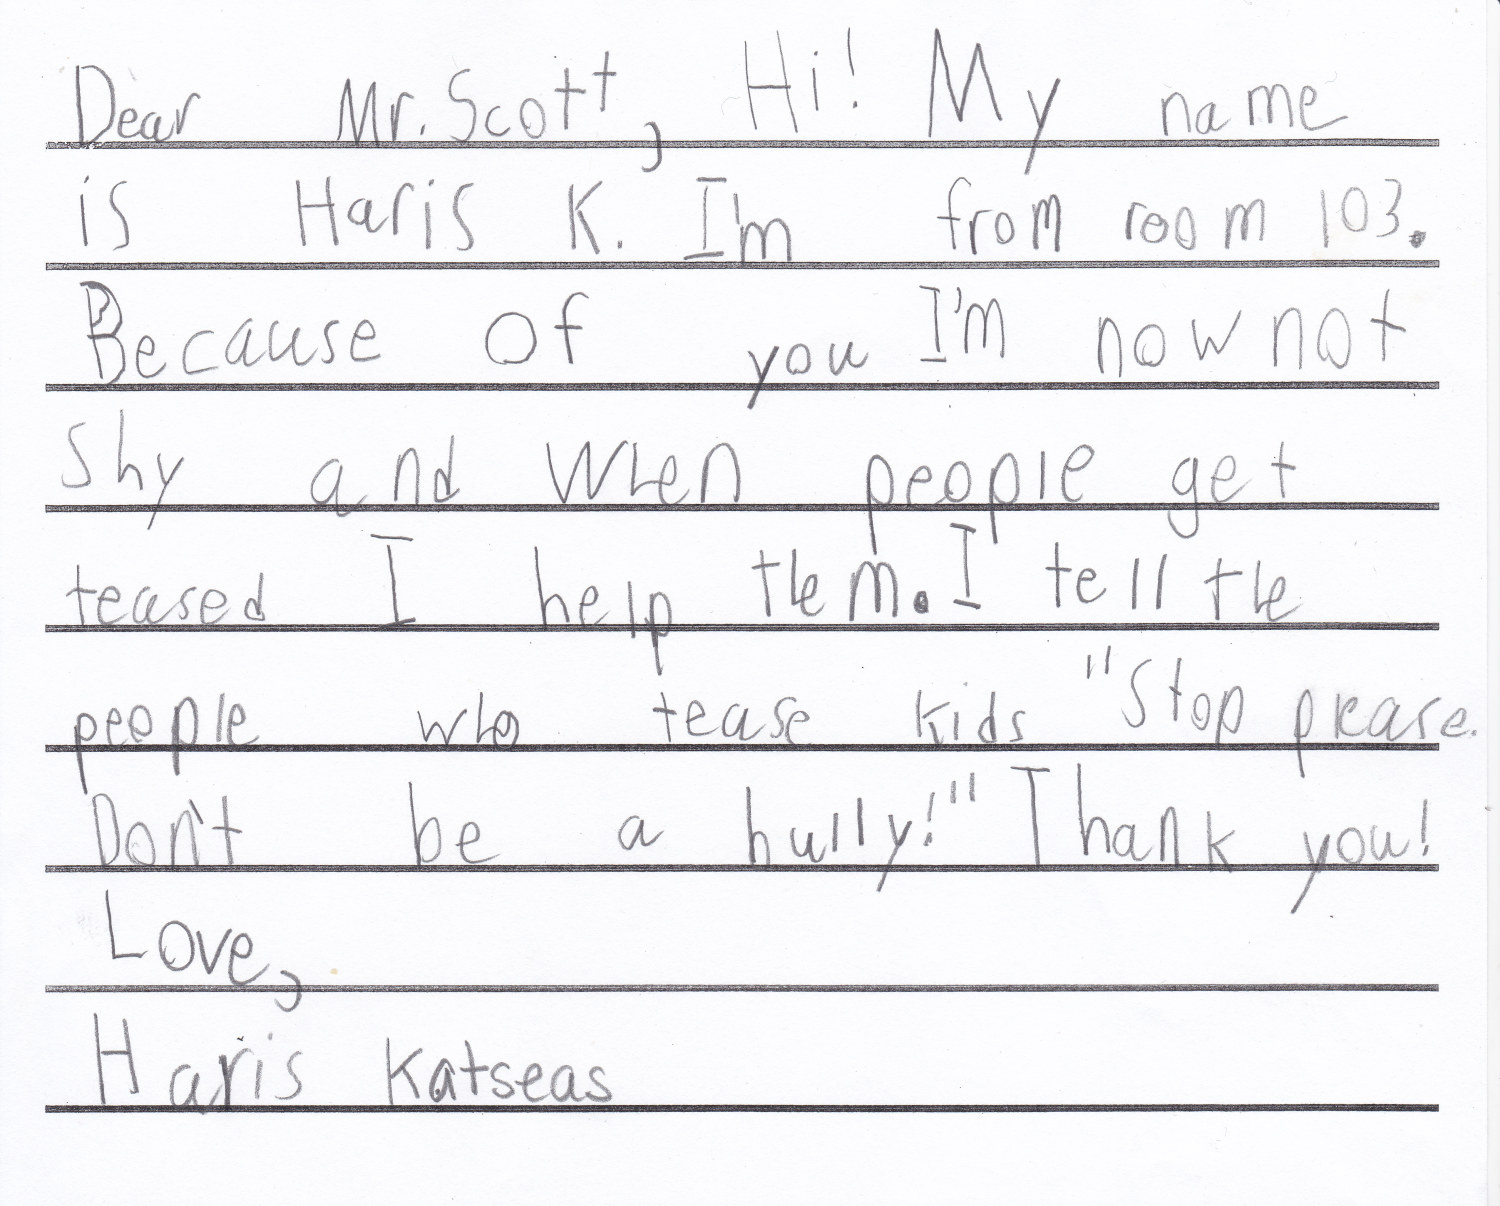 Dear Mr. Scott, Hi! My name
is Haris K. I'm from room 103.
Because of you I'm now not
shy and when people get
teased I help them. I tell the
people who tease kids "Stop please.
Don't be a bully!" Thank you!
Love,
Haris Katseas